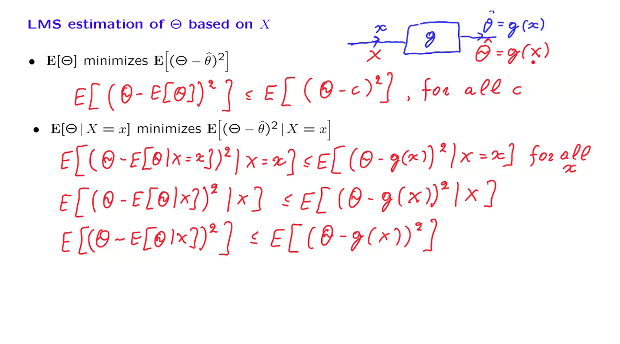 LMS estimation of Θ based on X
x
g
θ̂ = g(x)
X
Θ̂ = g(X)
• E[Θ] minimizes E[(Θ − θ̂)²]
E[(Θ − E[Θ])²] ≤ E[(Θ − c)²], for all c
• E[Θ | X = x] minimizes E[(Θ − θ̂)² | X = x]
E[(Θ − E[Θ|X=x])² | X=x] ≤ E[(Θ − g(x))² | X=x] for all x
E[(Θ − E[Θ|X])² | X] ≤ E[(Θ − g(X))² | X]
E[(Θ − E[Θ|X])²] ≤ E[(Θ − g(X))²]